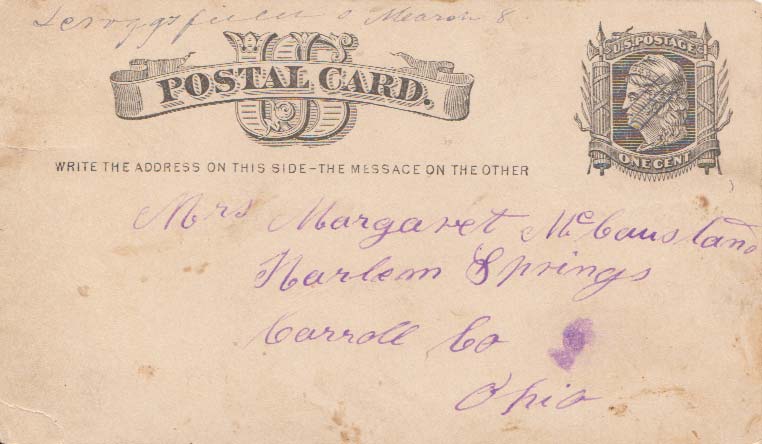 Scroggsfield O March 8
US
POSTAL CARD.
U.S. POSTAGE
ONE CENT
WRITE THE ADDRESS ON THIS SIDE - THE MESSAGE ON THE OTHER
Mrs Margaret McCausland
Harlem Springs
Carroll Co
Ohio